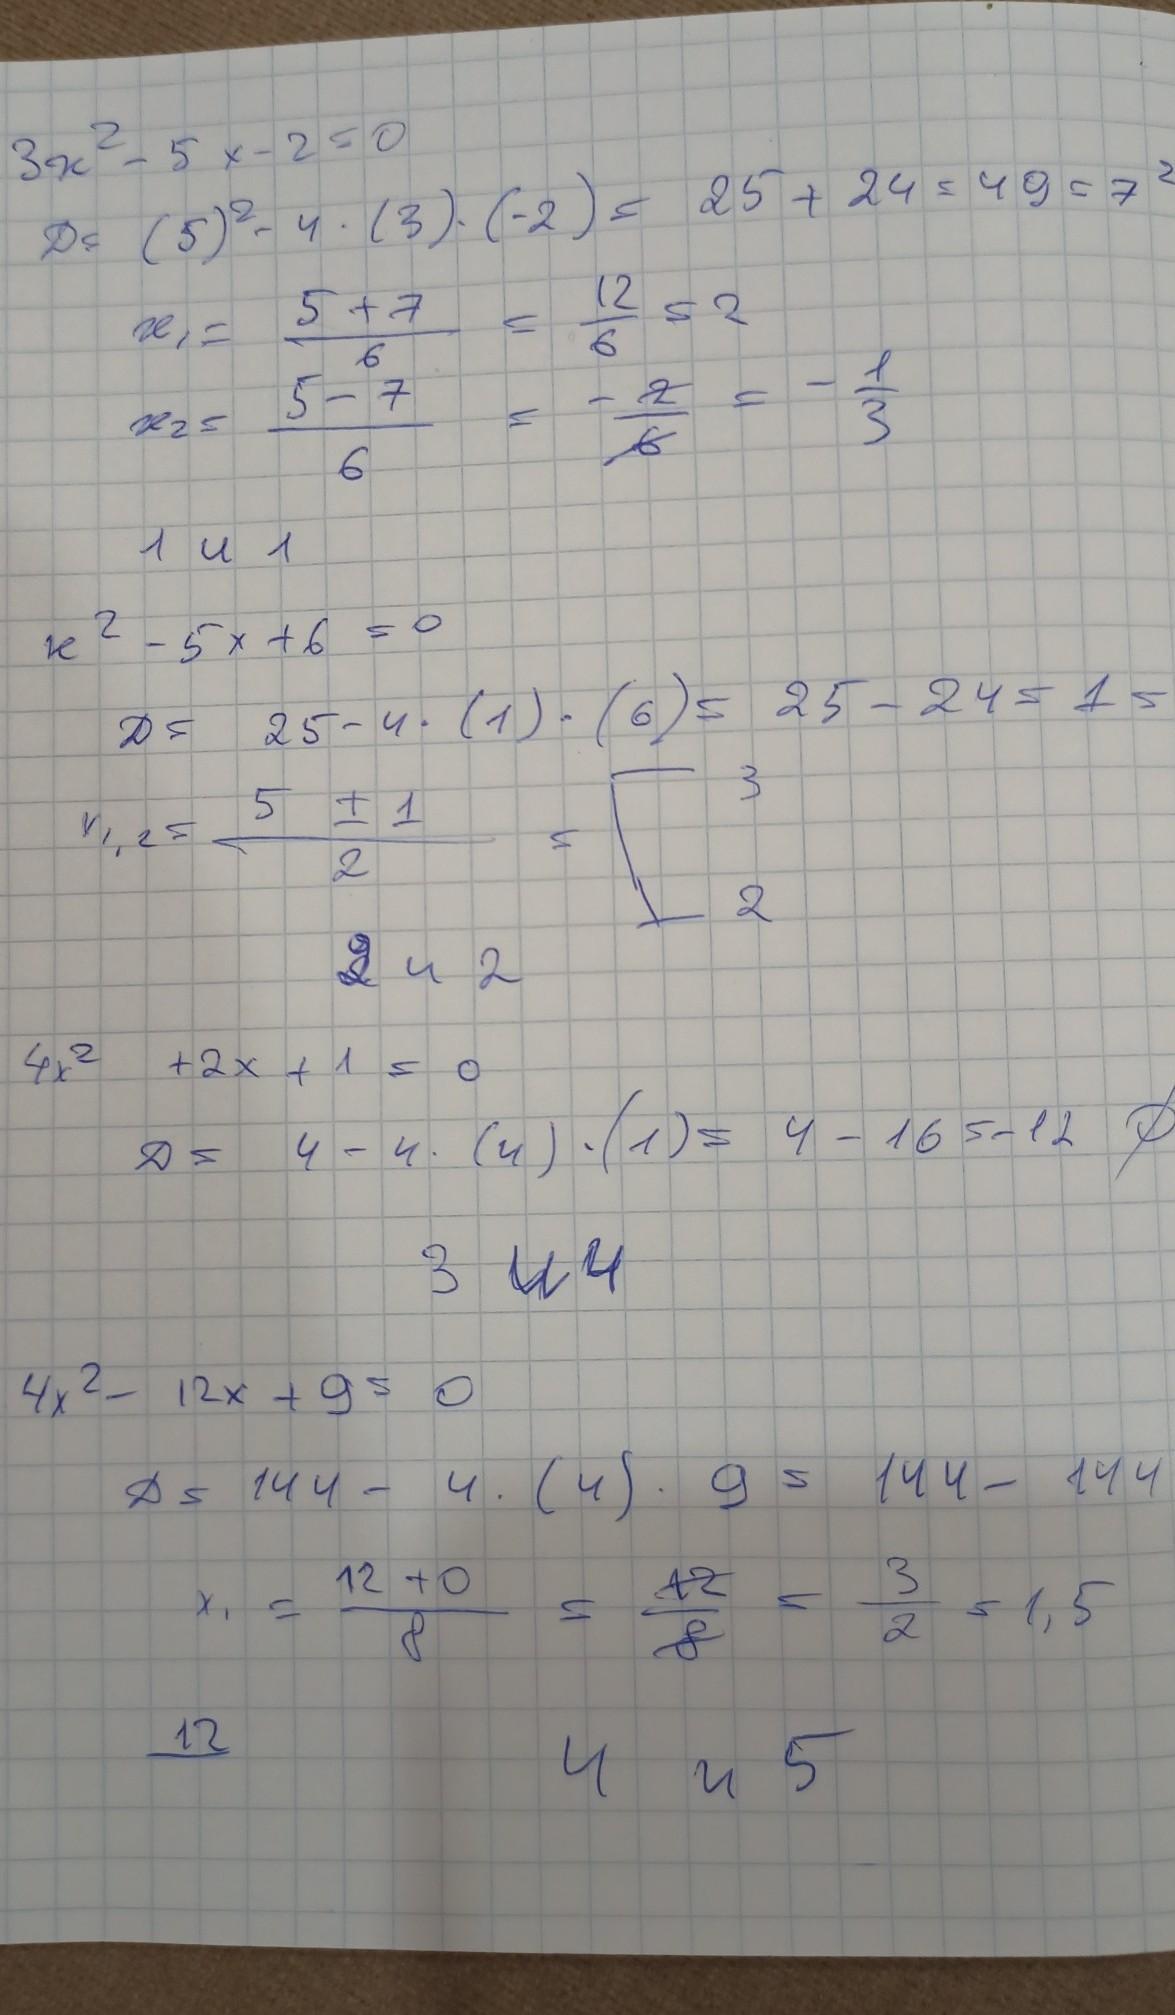 3x² - 5x - 2 = 0
D = (5)² - 4 · (3) · (-2) = 25 + 24 = 49 = 7²
x₁ = (5 + 7)/6 = 12/6 = 2
x₂ = (5 - 7)/6 = -2/6 = -1/3
1 и 1
x² - 5x + 6 = 0
D = 25 - 4 · (1) · (6) = 25 - 24 = 1 =
x₁,₂ = (5 ± 1)/2 = [ 3
2
2 и 2
4x² + 2x + 1 = 0
D = 4 - 4 · (4) · (1) = 4 - 16 = -12 ∅
3 и 4
4x² - 12x + 9 = 0
D = 144 - 4 · (4) · 9 = 144 - 144
x₁ = (12 + 0)/8 = 12/8 = 3/2 = 1,5
12
4 и 5